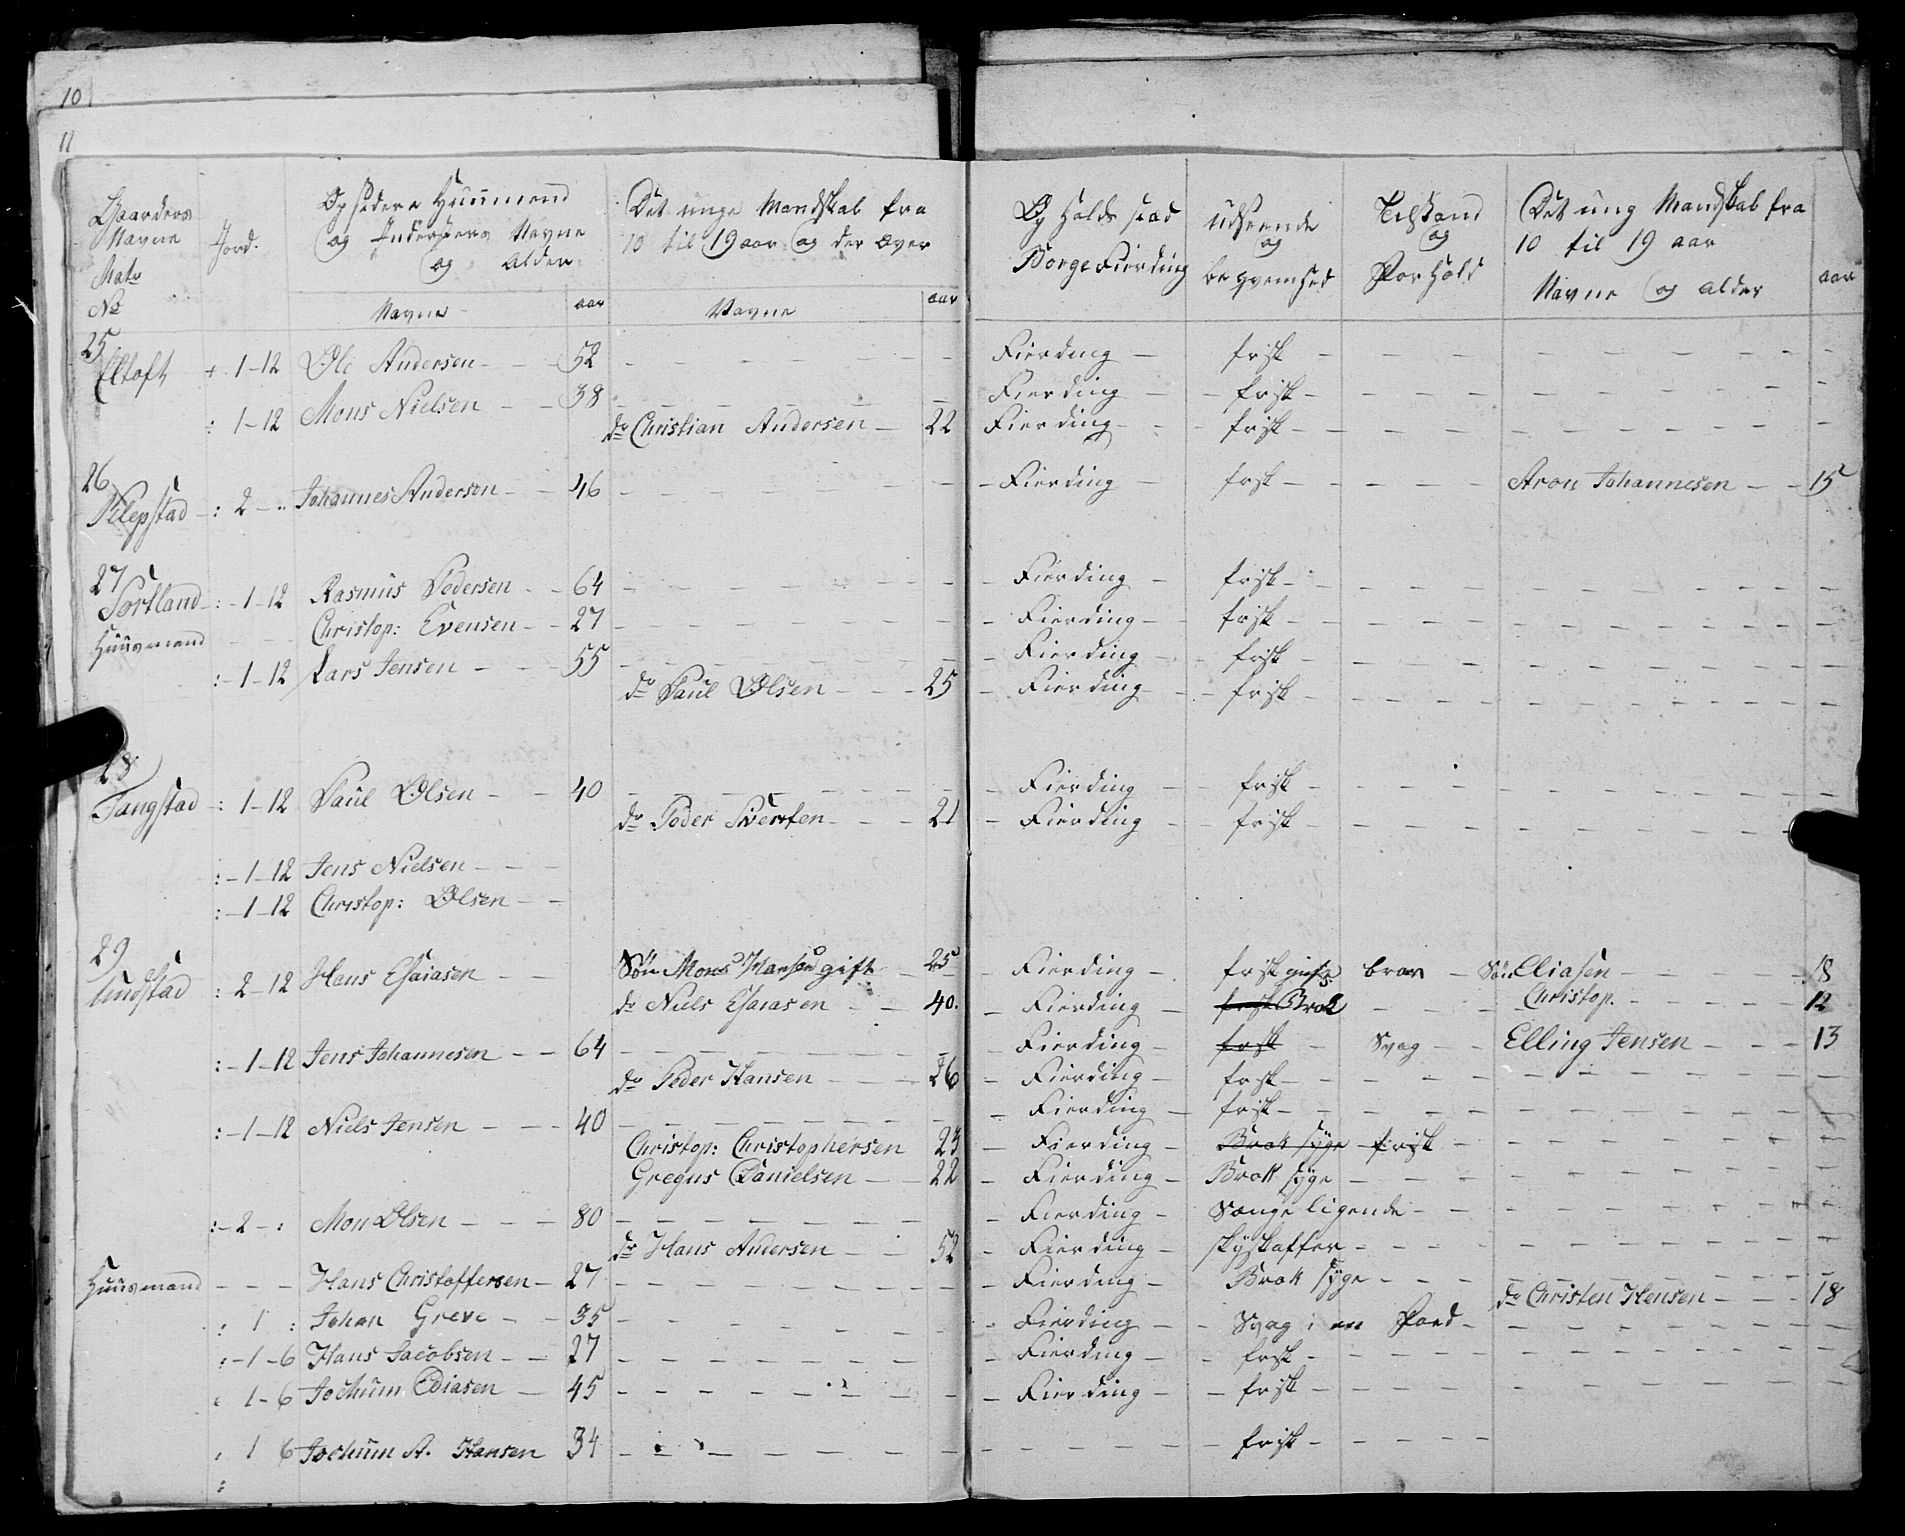 10
11
Gaarders Navne Matr No
Jord.
Opsidere Huusmend og Inderster's Navne og Alder
Navne
aar
Det unge Mandskab fra 10 til 19 aar og der over
Navne
aar
Op Holds stæd
Borge Fierding
Udseende og beqvemhed
Tilstand og Forhold
Det ung Mandskab fra 10 til 19 aar
Navne og alder
aar
25
Eltoft + 1-12 Ole Andersen 52 Fierding frisk
: 1-12 Mons Nielsen 38 Fierding frisk
do Christian Andersen 22 Fierding frisk
26
Pilepstad : 2 Johannes Andersen 46 Fierding frsk Aron Johannesen 15
27
Portland : 1-12 Rasmus Pedersen 64 Fierding frisk
Huusmand Christop: Evensen 27 Fierding frisk
: 1-12 Lars Jensen 55 Fierding frisk
do Paul Olsen 25 Fierding frisk
28
Tangstad : 1-12 Paul Olsen 40 Fierding frisk
do Peder Sivertsen 21 Fierding frisk
: 1-12 Jens Nielsen
: 1-12 Christop: Olsen
29
Undstad : 2-12 Hans Esaiasen Søn Mons Hansen gift 25 Fierding frisk brav Søn Eliasen 18
do Niels Esaiasen 40. Fierding frisk Brok Christop. 12
: 1-12 Jens Johannesen 64 Fierding frsk Svag Elling Jensen 13
do Peder Hansen 26 Fierding frsk
: 1-12 Niels Jensen 40 Fierding frisk
Christop: Christophersen 23 Fierding Brok syge frisk
Gregus Danielsen 22 Fierding Brok syge
: 2 : Mons Olsen 80 Fierding Sænge ligende
do Hans Andersen 52 Fierding skyskaffer
Huusmand Hans Christoffersen 27 Fierding Brok syge
do Christen Hensen 18
: 1 : Johan Greve 35 Fierding Svag i en Foed
: 1-6 Hans Jacobsen 27 Fierding frsk
: 1-6 Jochum Ediasen 45 Fierding frisk
: 1 6 Jochum A. Hansen 34 frisk